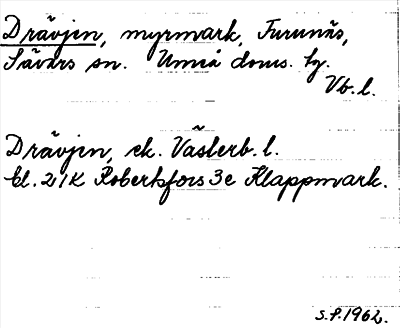 Drävjin, myrmark, Furunäs,
Sävars sn. Umeå doms. hg.
Vb. l.
Drävjin, ek. Västerb. l.
Bl. 21K Robertsfors 3e Klappmark.
S.P. 1962.